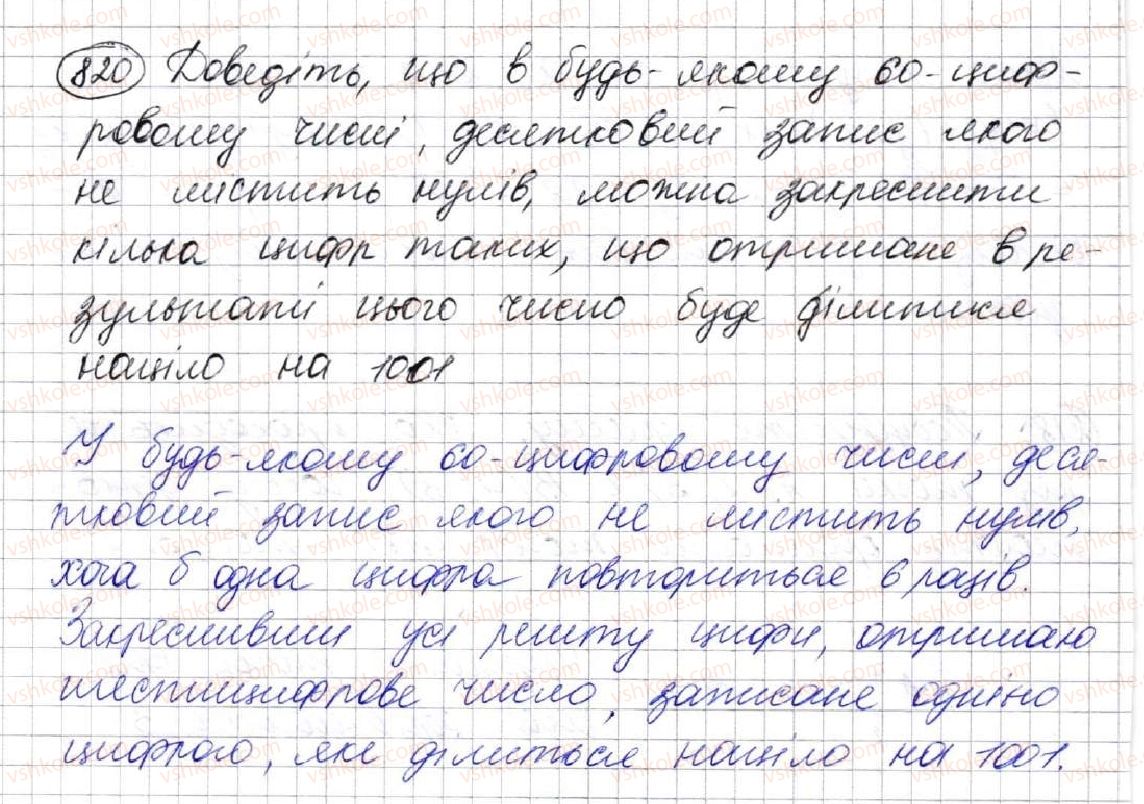 820 Доведіть, що в будь-якому 60-циф-
ровому числі, десятковий запис якого
не містить нулів, можна закреслити
кілька цифр таких, що отримане в ре-
зультаті цього число буде ділитися
націло на 1001
У будь-якому 60-цифровому числі, деся-
тковий запис якого не містить нулів,
хоча б одна цифра повториться 6 разів.
Закресливши усі решту цифри, отримаю
шестицифрове число, записане однією
цифрою, яке ділиться націло на 1001.